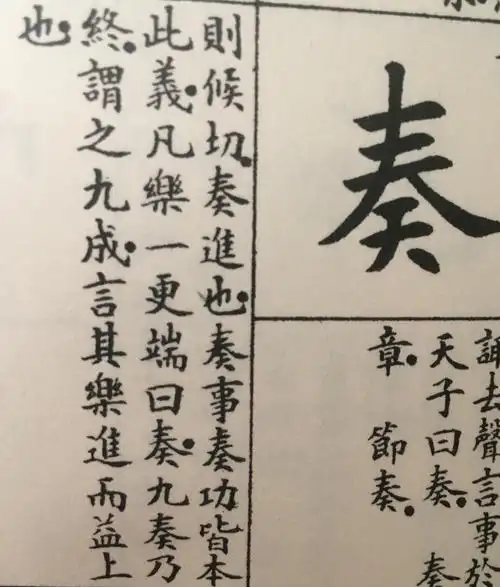 奏
諏去聲言事於
天子曰奏。奏
章。節奏。
則候切。奏進也。奏事奏功皆本
此義。凡樂一更端曰奏。九奏乃
終。謂之九成。言其樂進而益上
也。